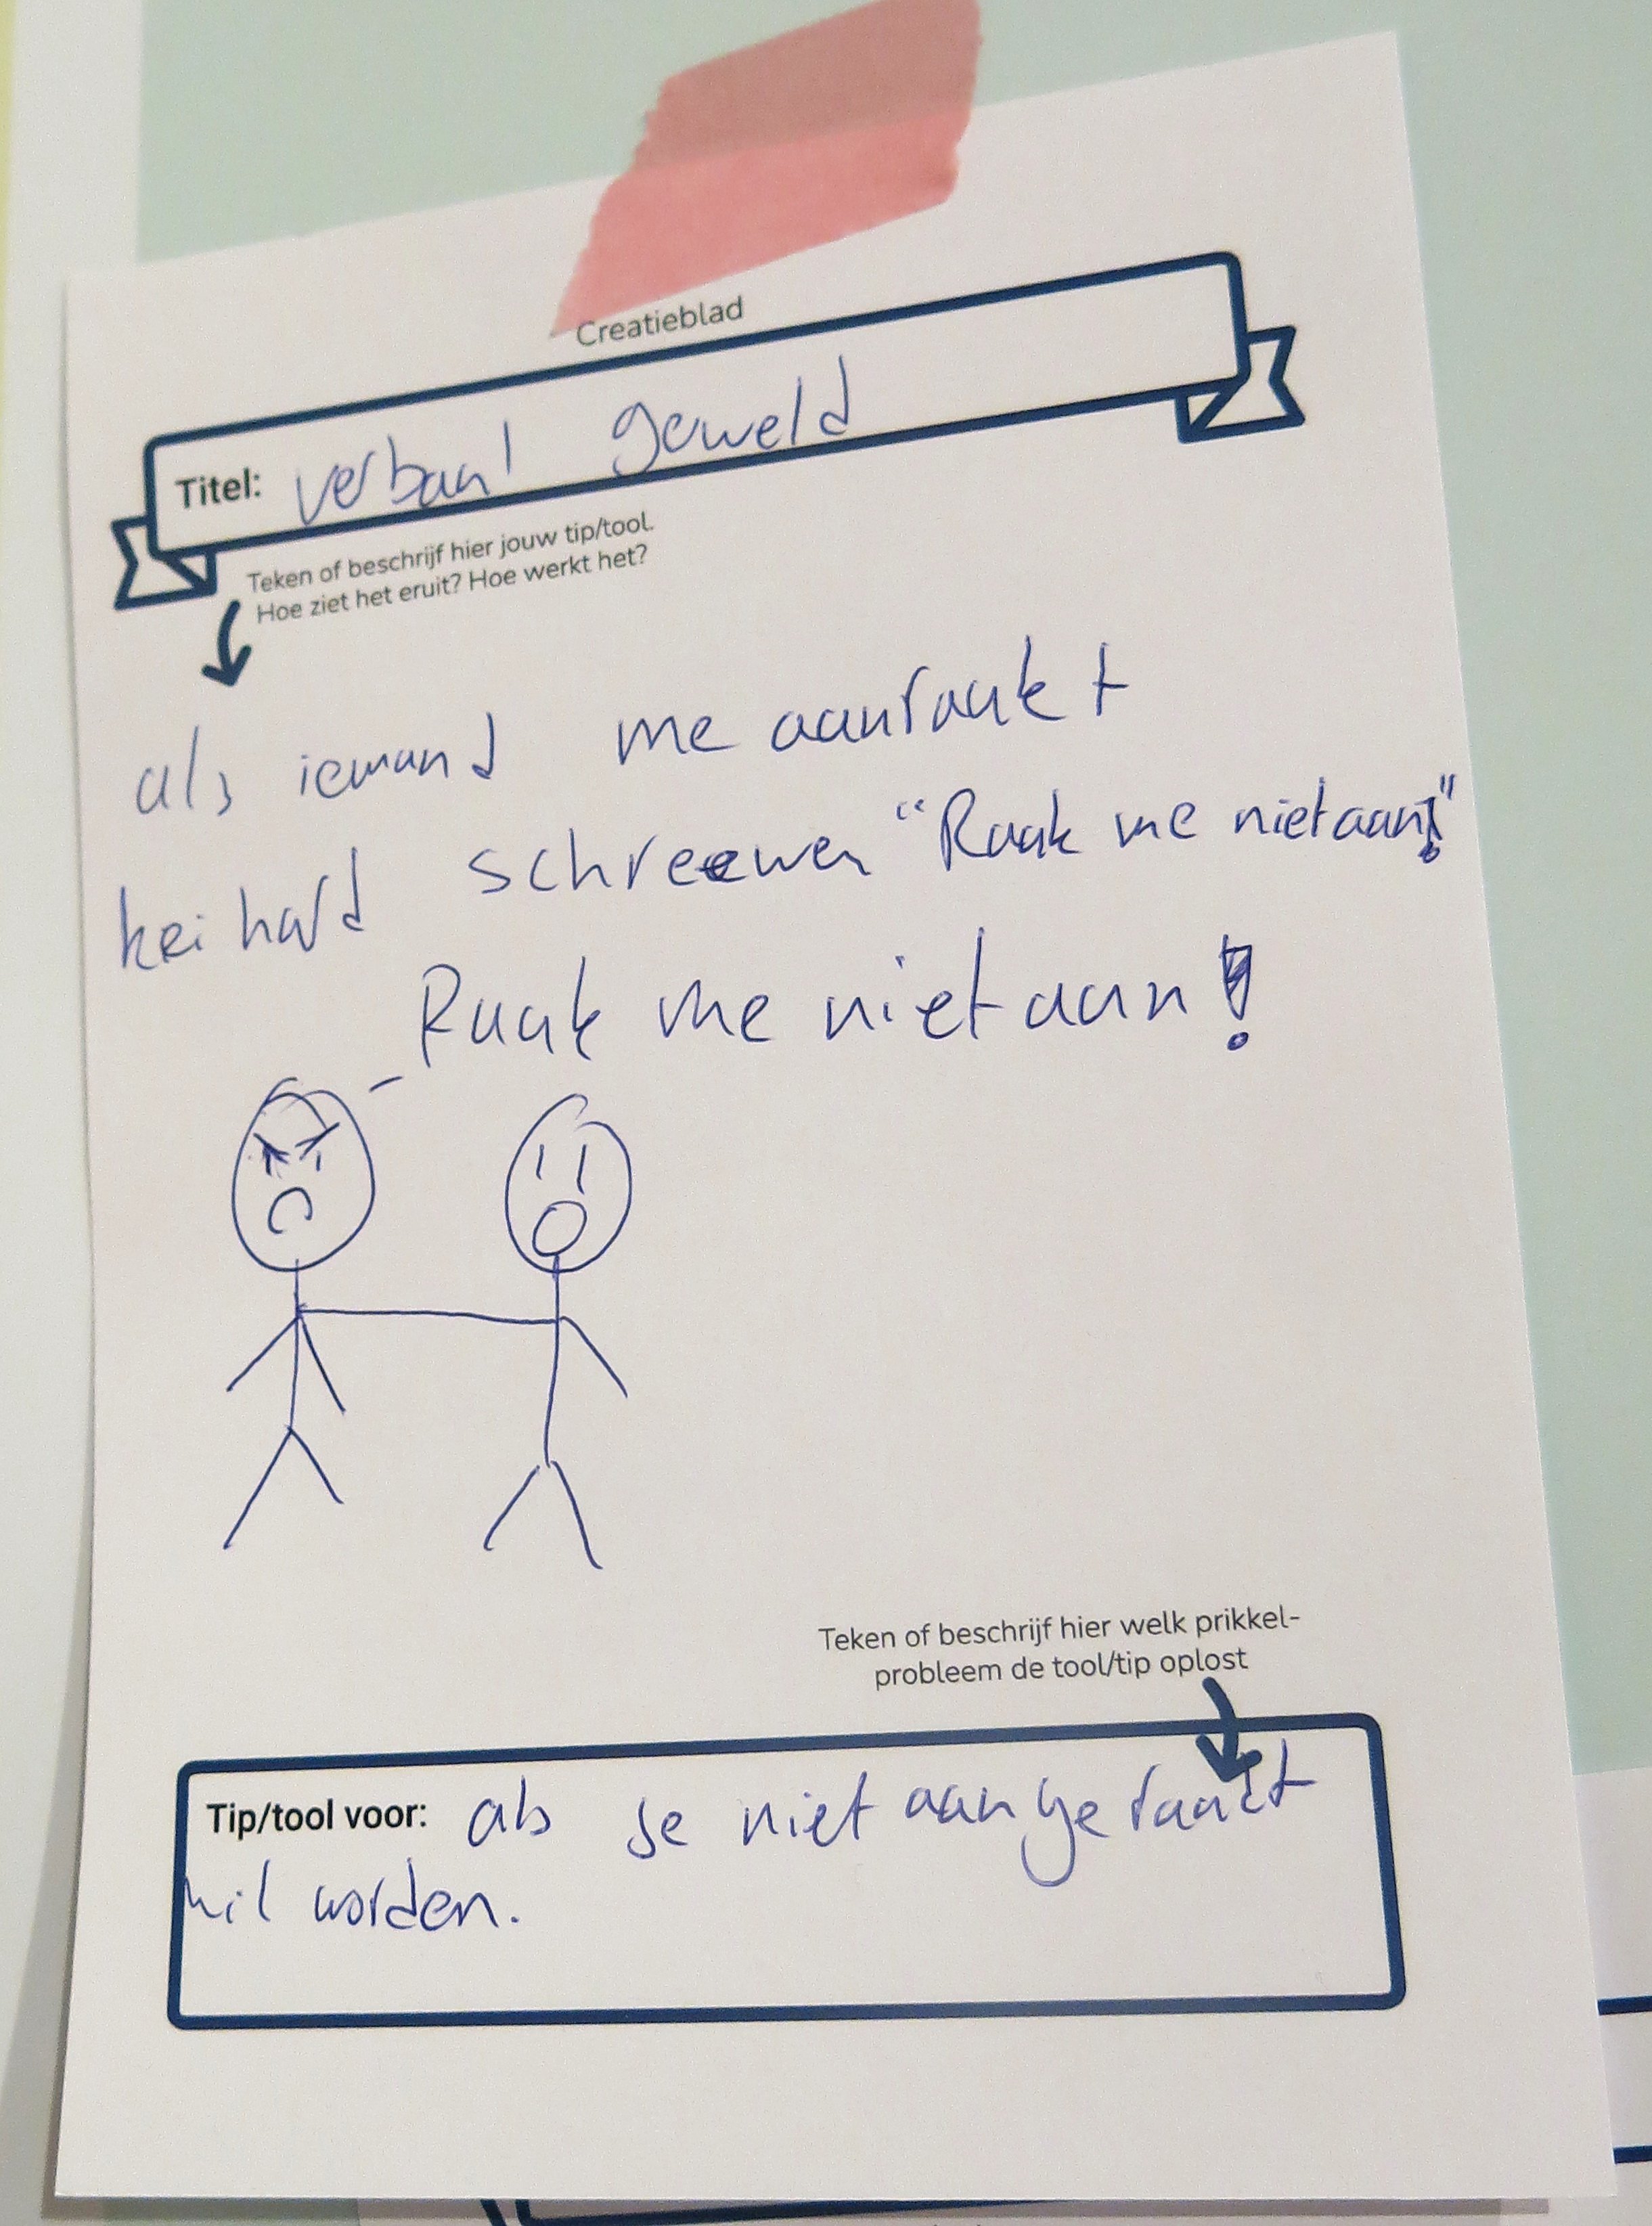 Creatieblad
Titel: verbaal geweld
Teken of beschrijf hier jouw tip/tool.
Hoe ziet het eruit? Hoe werkt het?
als iemand me aanraakt
keihard schreewen "Raak me niet aan!"
Raak me niet aan!
Teken of beschrijf hier welk prikkel-
probleem de tool/tip oplost
Tip/tool voor: als je niet aangeraakt
wil worden.